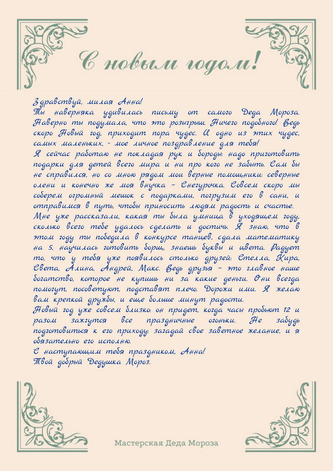 С новым годом!
Здравствуй, милая Анна!
Ты наверняка удивилась письму от самого Деда Мороза.
Наверно ты подумала, что это розыгрыш. Ничего подобного! Ведь
скоро Новый год, приходит пора чудес. И одно из этих чудес,
самых маленьких, - мое личное поздравление для тебя!
Я сейчас работаю не покладая рук и бороды: надо приготовить
подарки для детей всего мира и ни про кого не забыть. Сам бы
не справился, но со мною рядом мои верные помощники северные
олени и конечно же моя внучка - Снегурочка. Совсем скоро мы
соберем огромный мешок с подарками, погрузим его в сани, и
отправимся в путь, чтобы приносить людям радость и счастье.
Мне уже рассказали, какая ты была умница в уходящем году,
сколько всего тебе удалось сделать и достичь. Я знаю, что в
этом году ты победила в конкурсе танцев, сдала математику
на 5, научилась готовить борщ, знаешь буквы и цвета. Радует
то, что у тебя появилось столько друзей: Стелла, Кира,
Света, Алина, Андрей, Макс. Ведь друзья - это главное наше
богатство, которое не купишь ни за какие деньги. Они всегда
помогут, посоветуют, подставят плечо. Дорожи ими. Я желаю
вам крепкой дружбы, и еще больше минут радости.
Новый год уже совсем близко он придет, когда часы пробьют 12 и
разом зажгутся все праздничные огоньки. Не забудь
подготовиться к его приходу: загадай свое заветное желание, и я
обязательно его исполню.
С наступающим тебя праздником, Анна!
Твой добрый Дедушка Мороз.
Мастерская Деда Мороза